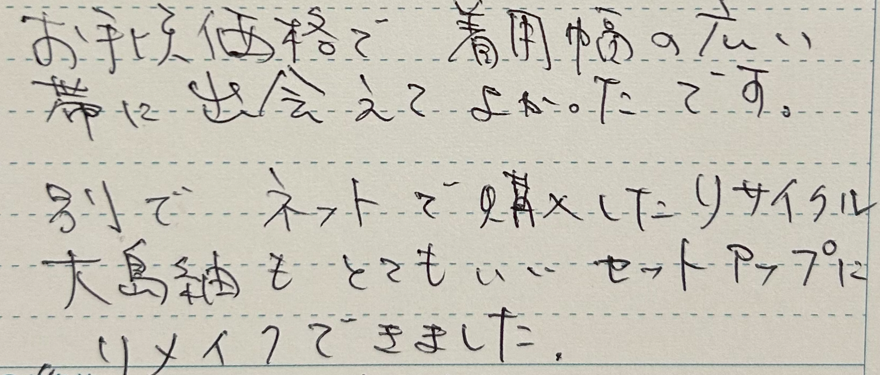 お手头価格で 着用幅の広い
帯に出会えてよかったです。
別で ネットで購入したリサイクル
大島紬もとてもいいセットアップに
リメイクできました.